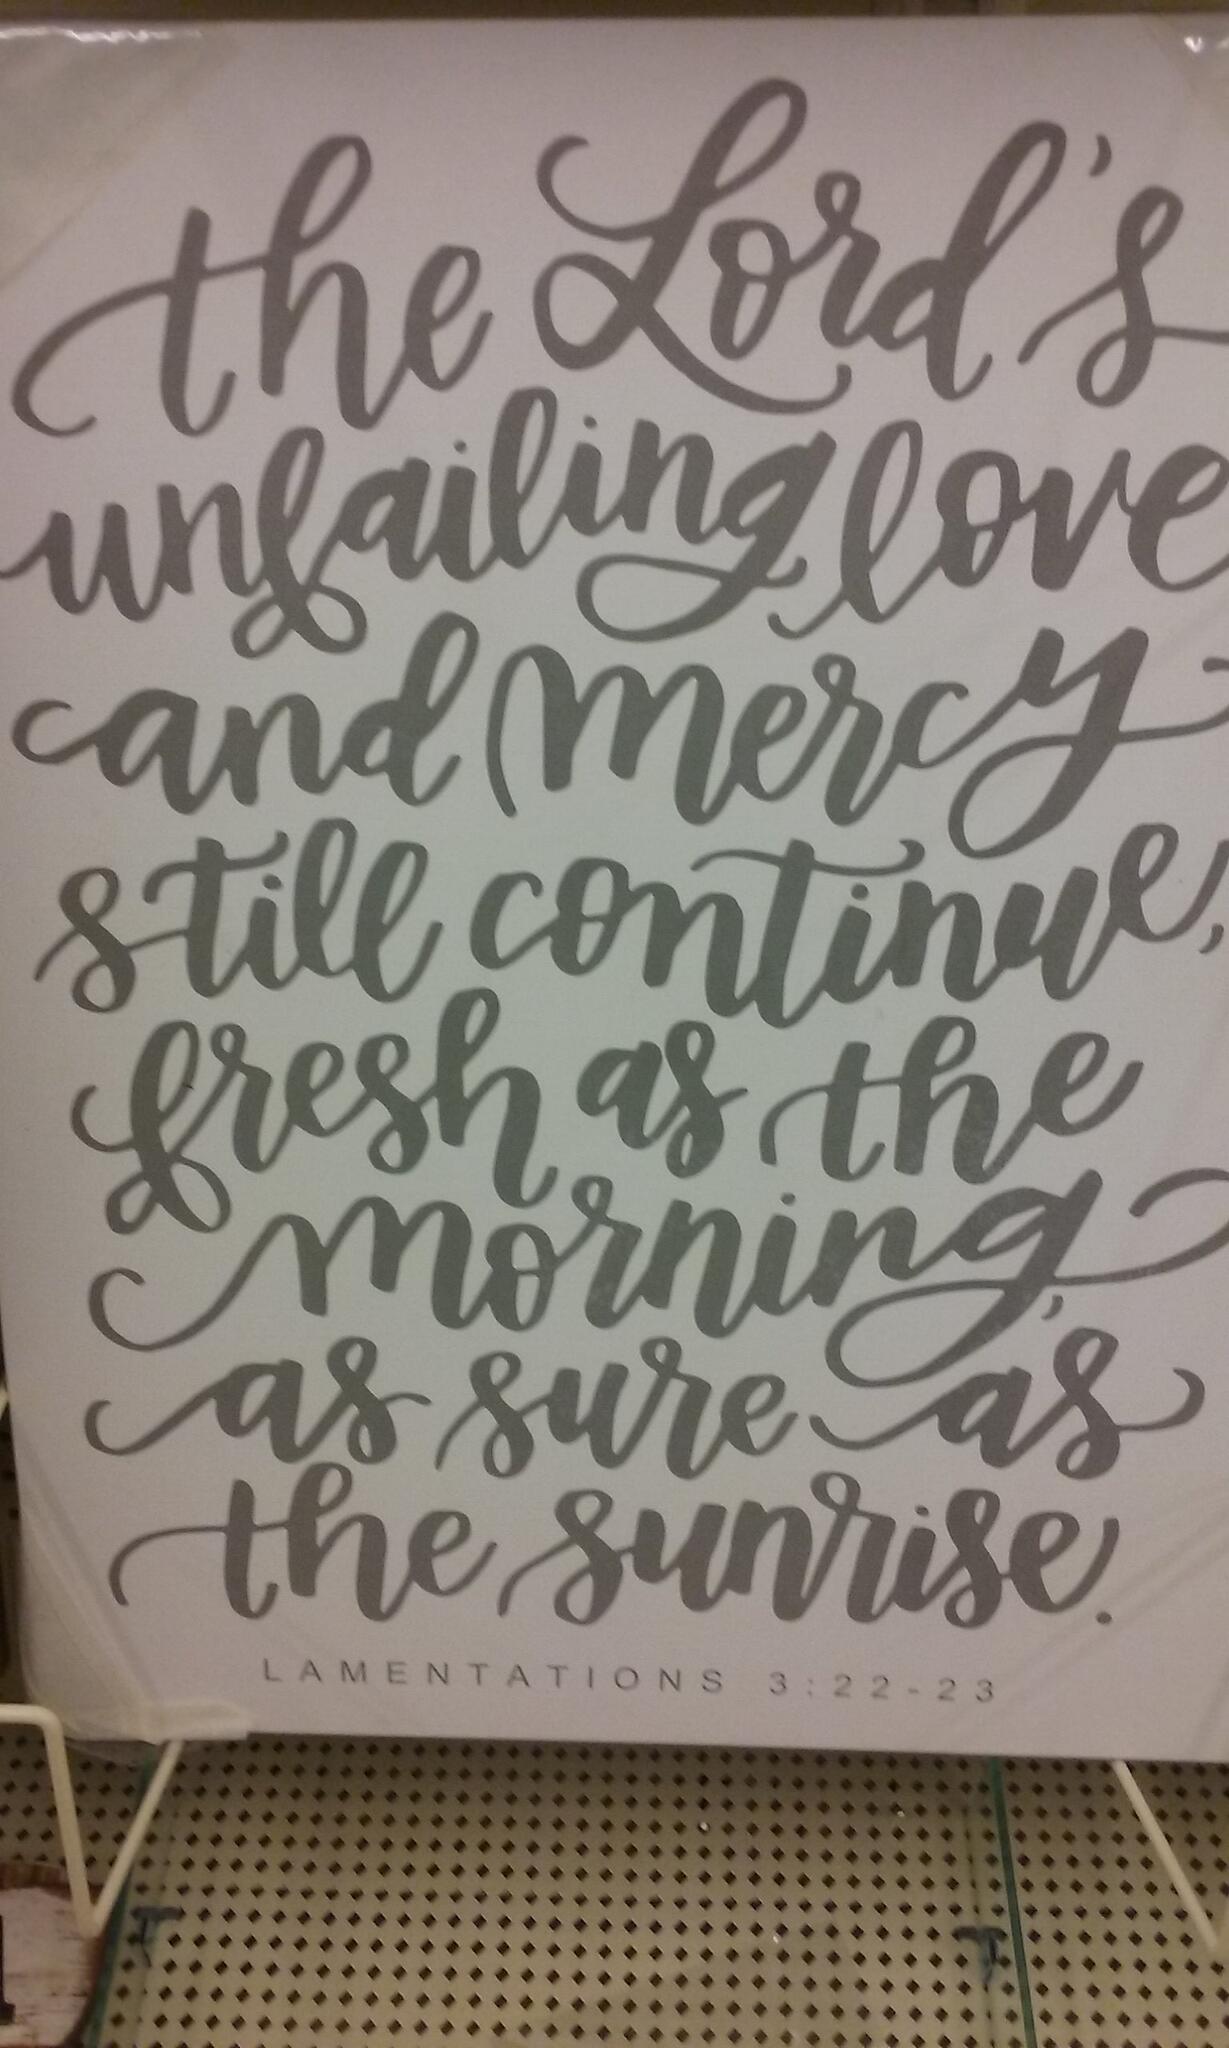 the Lord's
unfailing love
and mercy
still continue,
fresh as the
morning,
as sure as
the sunrise.
LAMENTATIONS 3:22-23